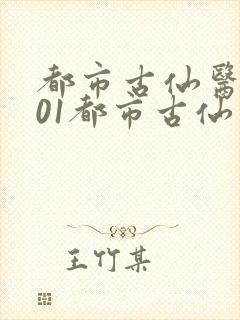 都市古仙醫
01都市古仙
王竹某